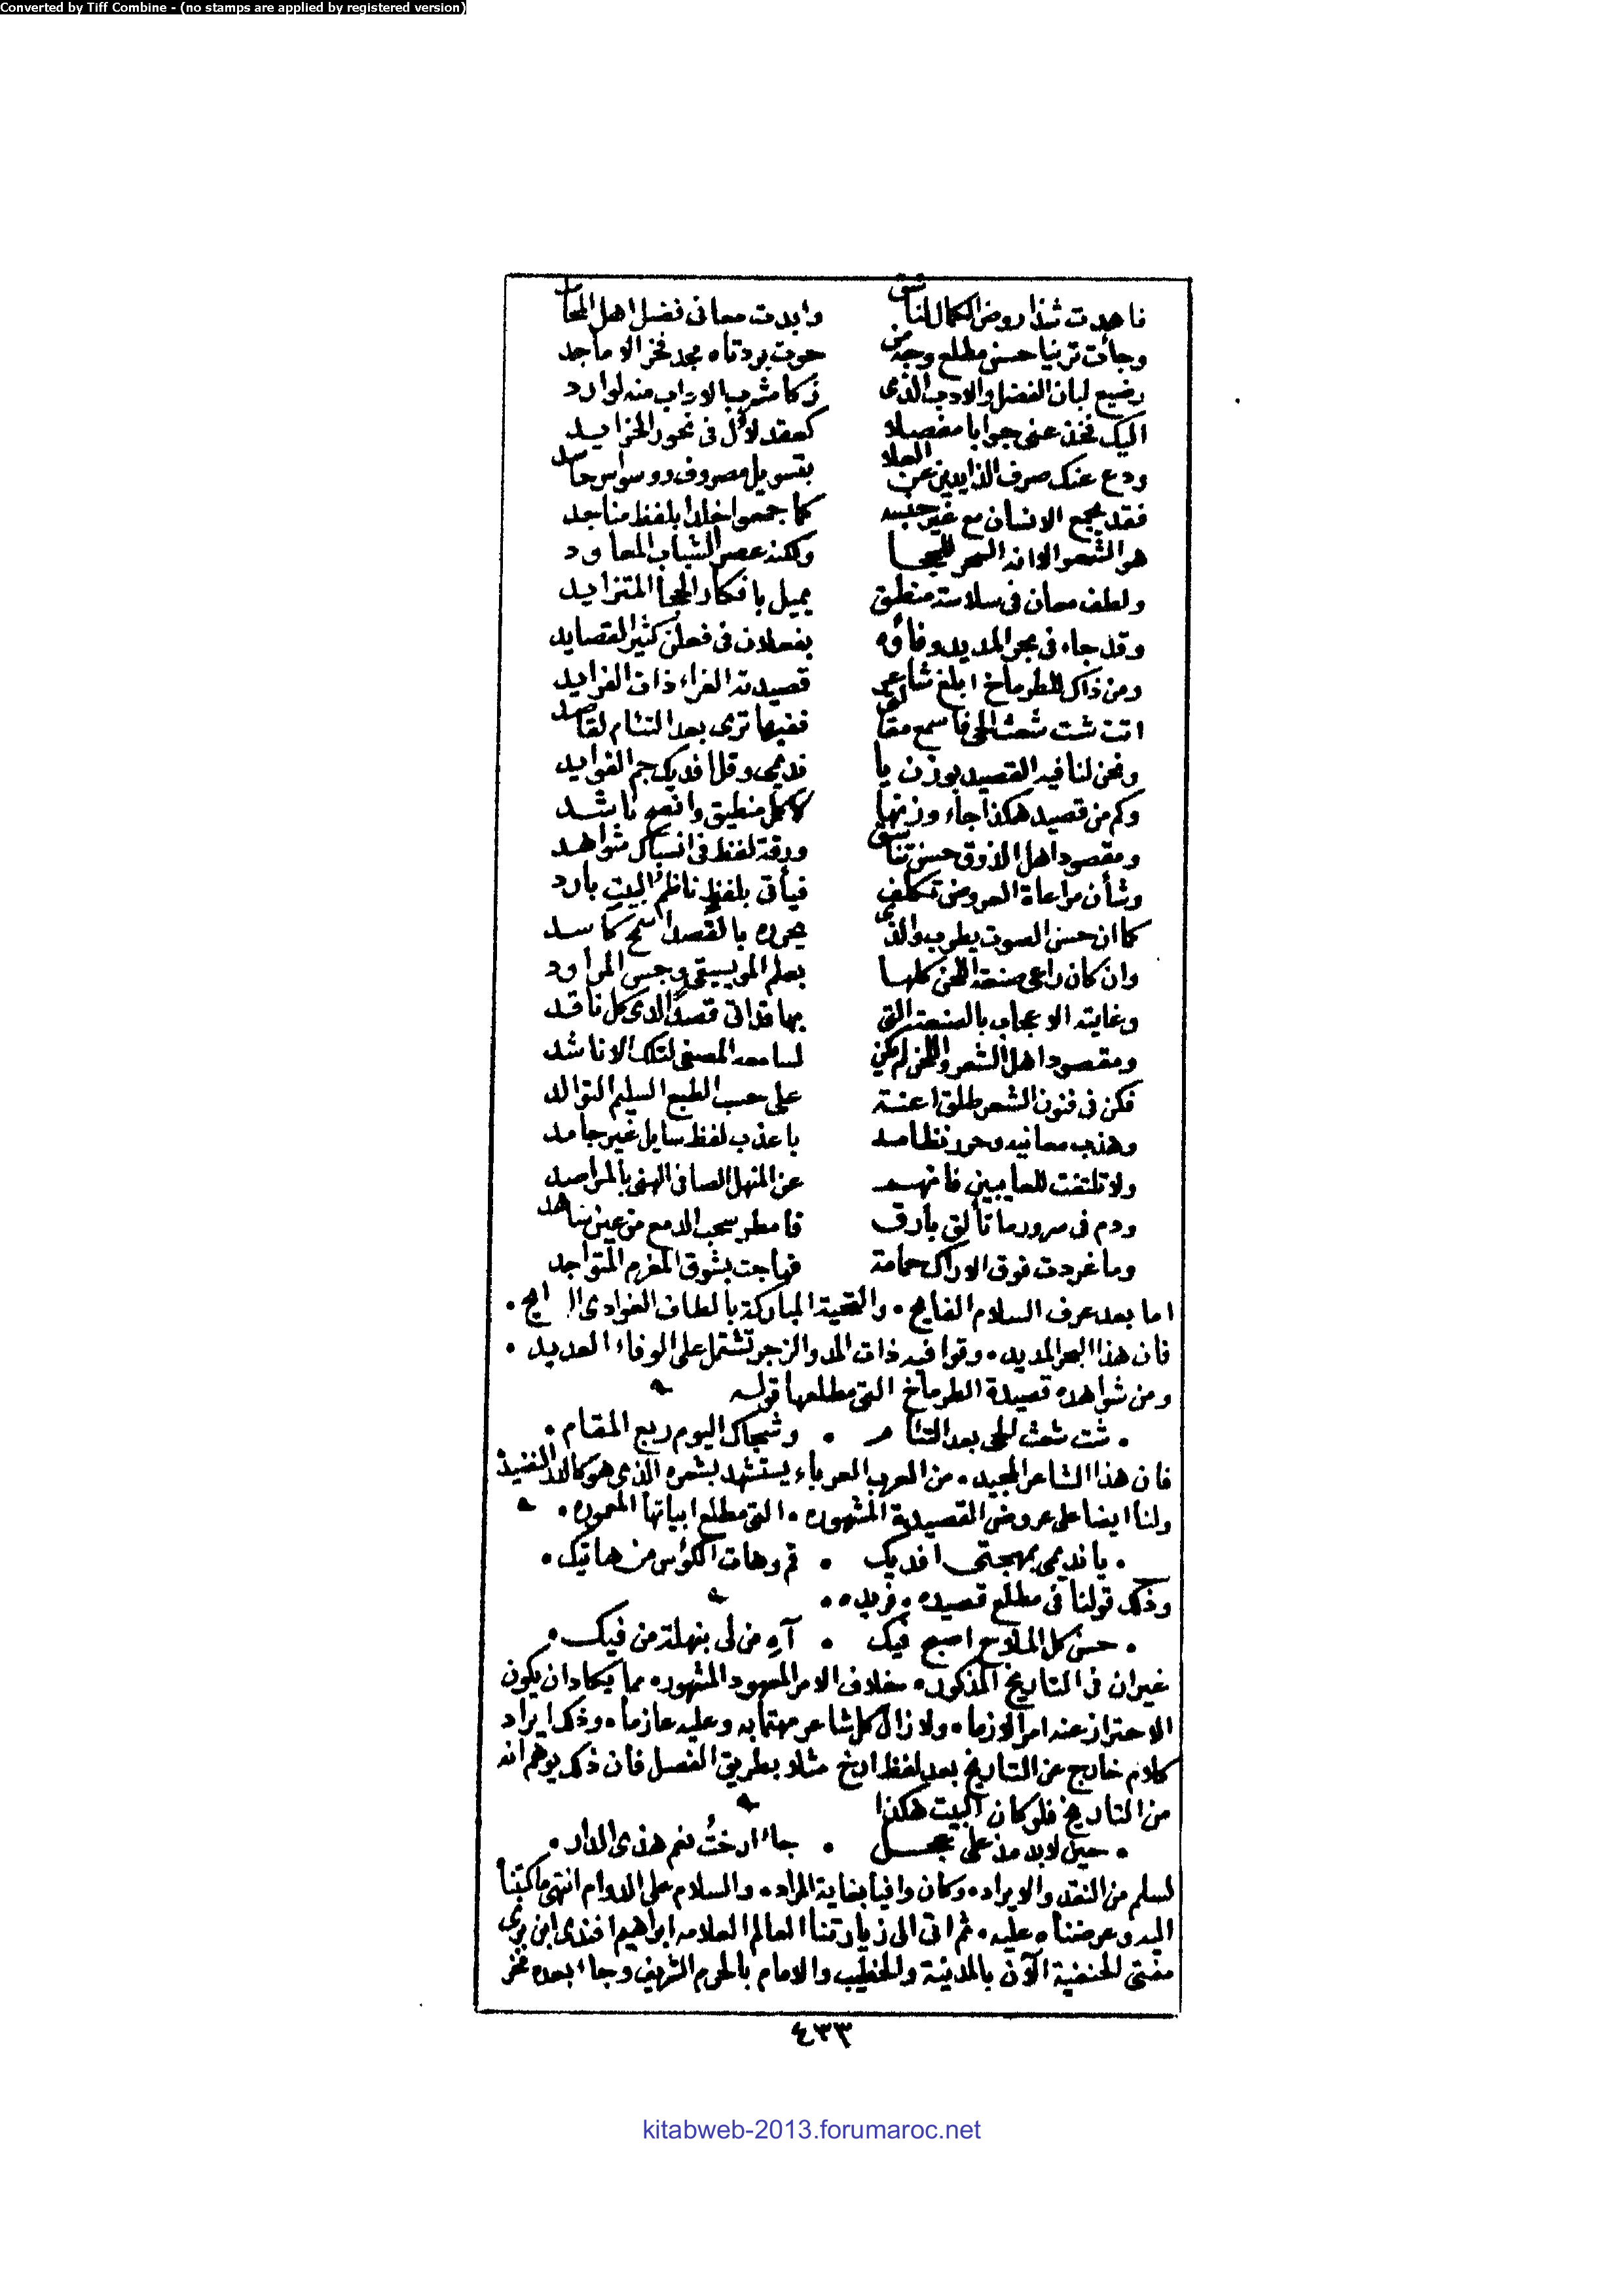 Converted by Tiff Combine - (no stamps are applied by registered version)
فاهدت شذا روض الكمال لناشق وابدت معانى فضل اهل المحامد
وجأت ترينا حسن مطلع وجه من حوت بردتاه مجد فخر الاماجد
رضيع لبان الفضل والادب الذى زكا مشرب الاداب منه لوارد
اليك فخذ عنى جوابا مفصلا كعقد لآل فى نحور الخرايد
ودع عنك صرف الذايدين عن العلا بتسويل مصروف ووسواس حاسد
فقد يجمع الانسان مع غير جنسه كما جمعوا خلدا بلفظ مناجد
هو الشعر الا انه السحر للحجا ولكنه عصر الشباب المعاود
ولطف معان فى سلاسة منطق يميل بافكار الحجا المتزايد
وقد جاء فى بحر المديد وفاؤه بفعلان فى فعلن كثير القصايد
ومن ذاك للطرماخ ابلغ شاعر قصيدته الغراء ذات الفرايد
اتت شت شعث الحى فاسمع مقاله ففيها ترى بعد التئام لقاصد
ونحن لنا فيه القصيد بوزن يا نديمى وقل افديك جم الفوايد
وكم من قصيد هكذا جاء وزنها لاكمل منطيق وافصح ناشد
ومقصود اهل الذوق حسن تناسق ورقة لفظ فى انسباك شواهد
وشأن مراعاة العروض تكلف فيأتى بلفظ ناظم البيت بارد
كما ان حسن الصوت يطرب والذى يحرره بالقصد اسمج كاسد
وان كان راعى صنعة اللحن كلها بعلم الموسيقى وجس المراود
وغايته الاعجاب بالصنعة التى بها قد اتى قصدا لدى كل ناقد
ومقصود اهل الشعر واللحن لم يكن لسامعه المصغى لتلك الاناشد
فكن فى فنون الشعر طلق اعنة على حسب الطبع السليم التوالد
وهذب معانيه وحرر نظامه باعذب لفظ سايل غير جامد
ولا تلتفت للعايبين فانهم عن المنهل الصافى الهنى بالمراصد
ودم فى سرور ما تألق بارق فامطر سحب الدمع من عين شاهد
وما غردت فوق الاراك حمامة فهاجت بشوق المغرم المتواجد
اما بعد عرف السلام الفايح • والتحية المباركة بالطاف الغوادى •
فان هذا البحر المديد • وقوافيه ذات المد والزجر تشتمل على الوفاء العديد •
ومن شواهده قصيدة الطرماخ التى مطلعها قوله
• شت شعث الحى بعد التئام • وشجاك اليوم ربع المقام •
فان هذا الشاعر المجيد • من العرب العرباء يستشهد بشعره الذى هو كالدر النضيد
ولنا ايضا على عروض القصيدة المشهوره • التى مطلع ابياتها المعموره •
• يا نديمى بمهجتى افديك • قم وهات الكؤس من هاتيك •
وذلك قولنا فى مطلع قصيده • فريده •
• حسن كل الملاح اصبح فيك • آه من لى بنهلة من فيك •
غير ان فى التاريخ المذكور • خلاف الامر المعهود المشهور • مما يكاد ان يكون
الاحتراز عنه امرا لازما • ولا زال كل شاعر مهتما به وعليه عازما • وذلك ايراد
كلام خارج عن التاريخ بعد لفظ ارخ مثلا بطريق الفصل فان ذلك يوهم انه
من التاريخ فلو كان البيت هكذا
• حين لابد منه على عجل • جاء ارختُ نعم هذى الدار •
لسلم من النقد والايراد • وكان وافيا بغاية المراد • والسلام على الدوام انتهى ما كتبنا
اليه وعرضناه عليه • ثم اتى الى زيارتنا العالم العلامه ابراهيم افندى ابن برى
مفتى الحنفية الآن بالمدينة والخطيب والامام بالحرم الشريف وجاء بعده فخر
٤٣٣
kitabweb-2013.forumaroc.net